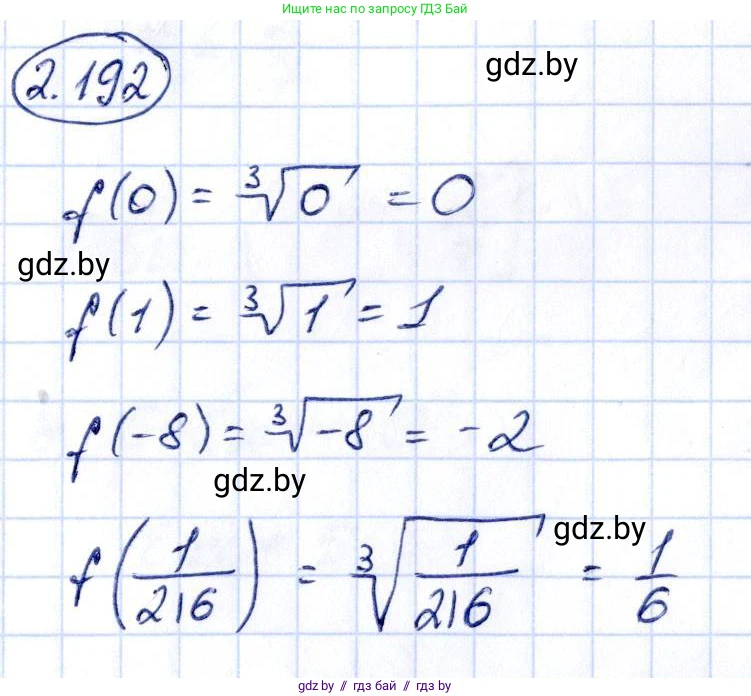 Ищите нас по запросу ГДЗ Бай
2.192
gdz.by
f(0) = ∛0 = 0
gdz.by
f(1) = ∛1 = 1
f(-8) = ∛-8 = -2
gdz.by
gdz.by
f(1/216) = ∛(1/216) = 1/6
gdz.by // гдз бай // gdz by